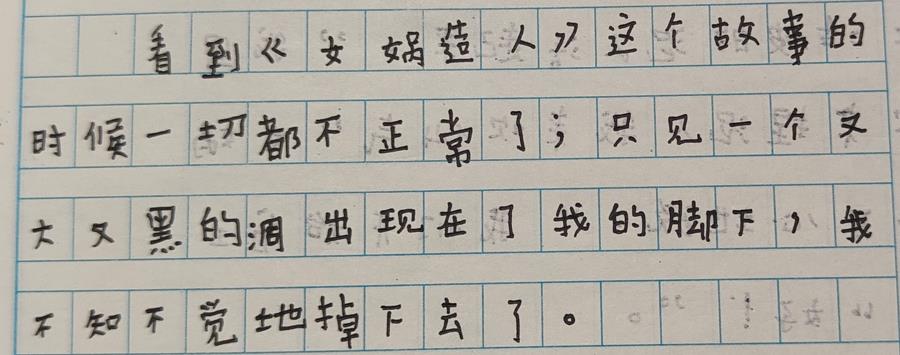 看到《女娲造人》这个故事的
时候一切都不正常了；只见一个又
大又黑的洞出现在了我的脚下，我
不知不觉地掉下去了。